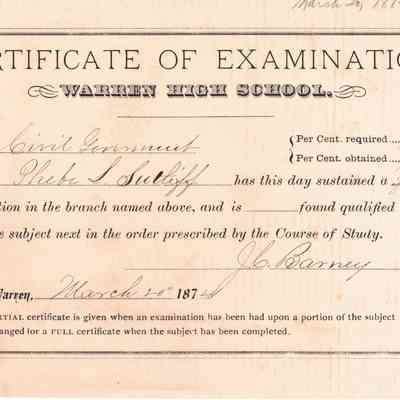 March 20, 187
ERTIFICATE OF EXAMINATIO
WARREN HIGH SCHOOL.
Civil Government
Per Cent. required
Phebe L. Sutliff
Per Cent. obtained
has this day sustained a
tion in the branch named above, and is ______ found qualified
e subject next in the order prescribed by the Course of Study.
J. C. Barney
Warren, March 20th 1874
TIAL certificate is given when an examination has been had upon a portion of the subject
anged for a FULL certificate when the subject has been completed.